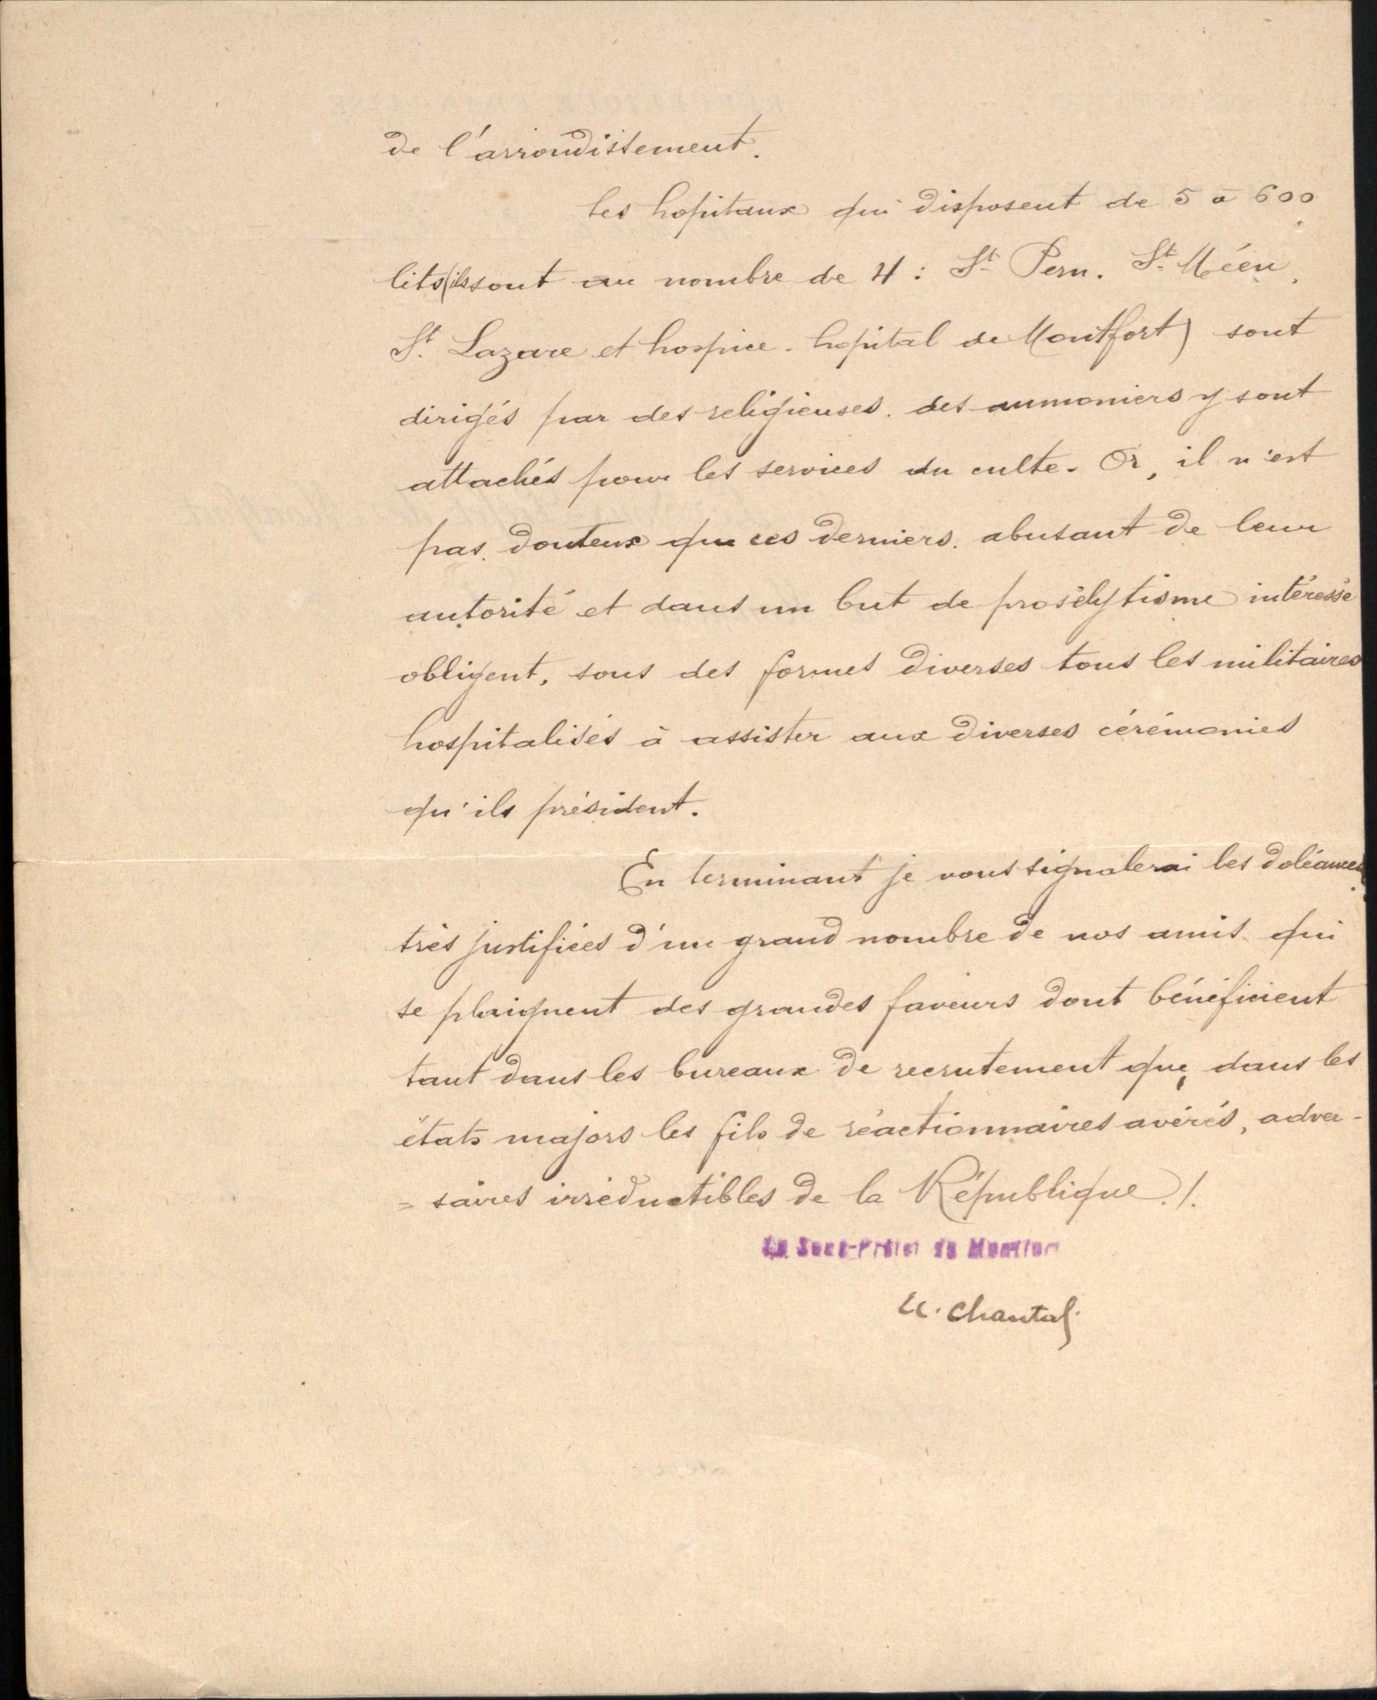 de l'arrondissement.
les hopitaux qui disposent de 5 à 600
lits (ils sont au nombre de 4 : St Pern. St Méen,
St. Lazare et hospice - hopital de Montfort) sont
dirigés par des religieuses. des aumoniers y sont
attachés pour les services du culte. Or, il n'est
pas douteux que ces derniers. abusant de leur
autorité et dans un but de prosélytisme intéressé
obligent, sous des formes diverses tous les militaires
hospitalisés à assister aux diverses cérémonies
qu'ils président.
En terminant je vous signalerai les doléances
très justifiées d'un grand nombre de nos amis qui
se plaignent des grandes faveurs dont bénéficient
tant dans les bureaux de recrutement que dans les
états majors les fils de réactionnaires avérés, adver-
= saires irréductibles de la République ./.
Le Sous-Préfet de Montfort
Chantal